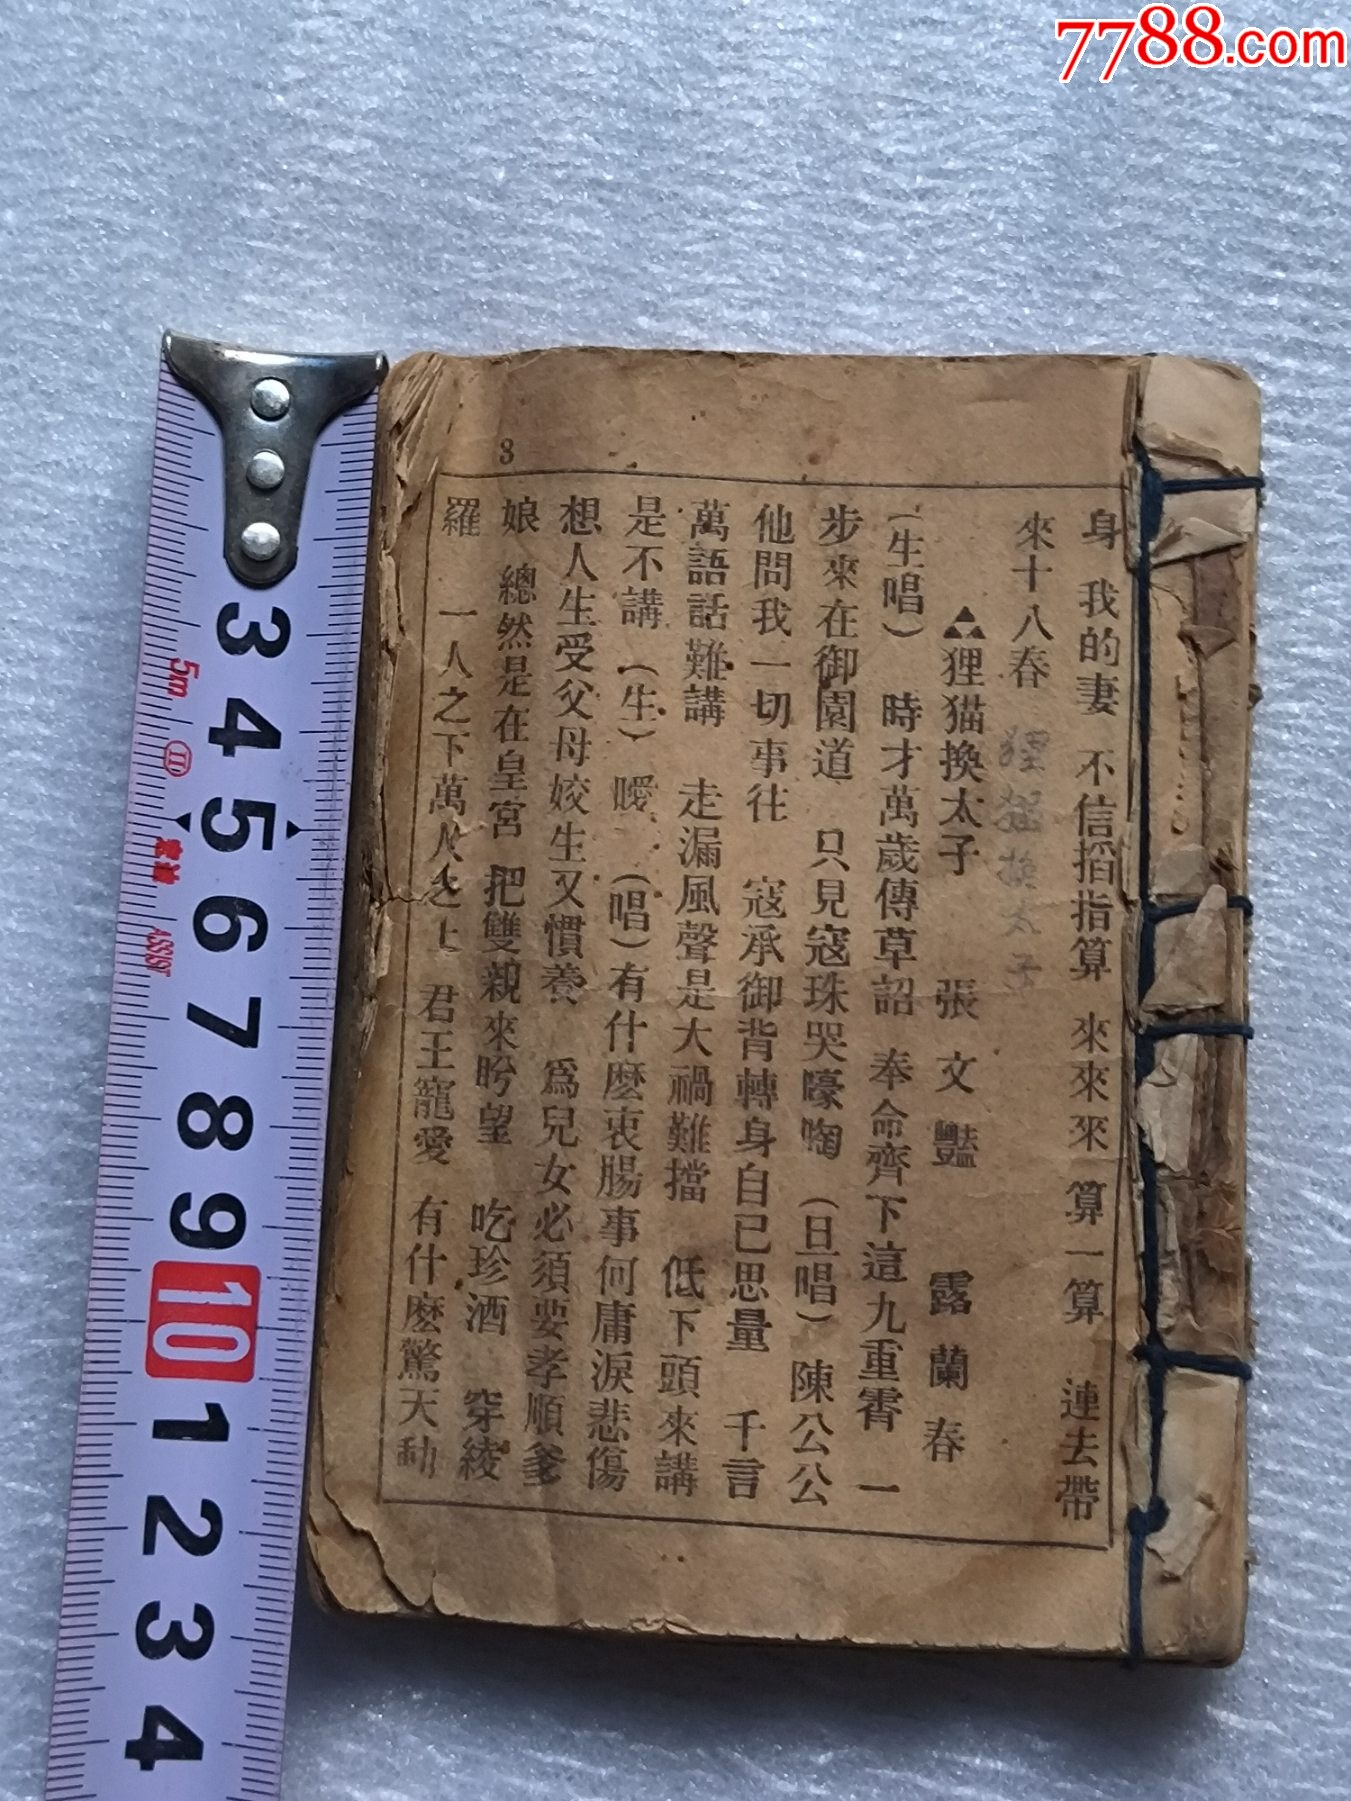 7788.com
3
身 我的妻 不信搯指算 來來來 算一算 連去帶
來十八春
狸猫換太子
狸猫換太子 張文豔 露蘭春
(生唱) 時才萬歲傳草詔 奉命齊下這九重霄 一
步來在御園道 只見寇珠哭嚎啕 (旦唱) 陳公公
他問我一切事往 寇承御背轉身自己思量 千言
萬語話難講 走漏風聲是大禍難擋 低下頭來講
是不講 (生) 噯 (唱) 有什麽衷腸事何庸淚悲傷
想人生受父母姣生又慣養 爲兒女必須要孝順爹
娘 總然是在皇宮 把雙親來盻望 吃珍酒 穿綾
羅 一人之下萬人之上 君王寵愛 有什麽驚天動
3 4 5 6 7 8 9 10 1 2 3 4
5m
ASSIST